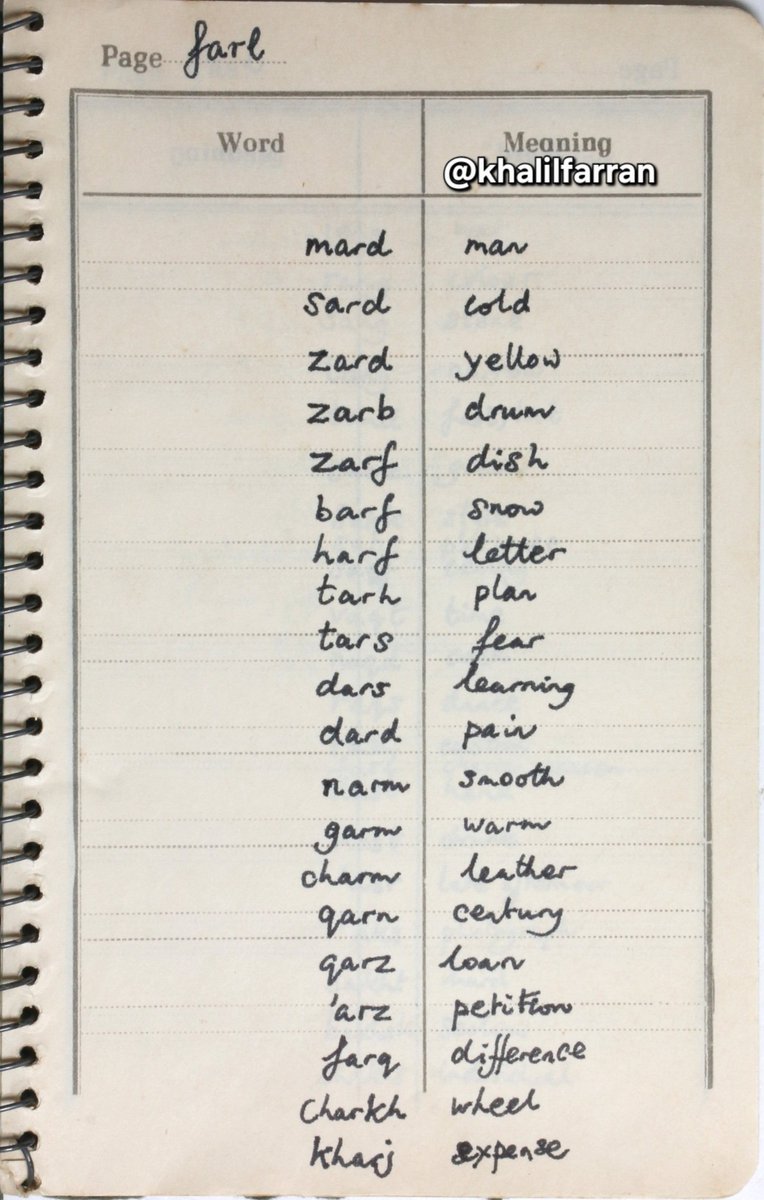 Page farl
Word Meaning
@khalilfarran
mard man
sard cold
zard yellow
zarb drum
zarf dish
barf snow
harf letter
tarh plan
tars fear
dars learning
dard pain
narm smooth
garm warm
charm leather
qarn century
qarz loan
'arz petition
farq difference
charkh wheel
kharj expense